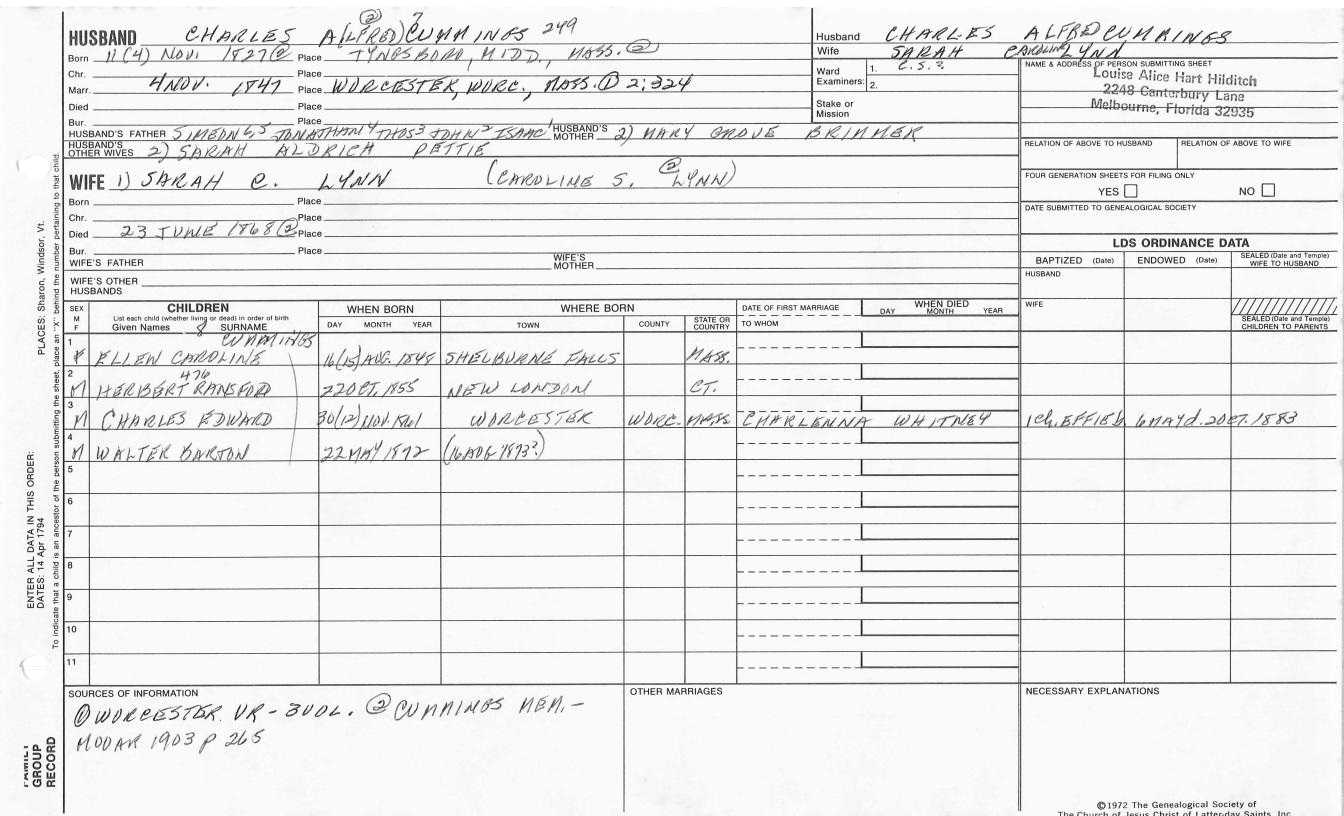 HUSBAND CHARLES A(LFRED)② CUMMINGS 7 249
Born 11(4) NOV. 1827② Place TYNGSBORO, MIDD., MASS.②
Chr. Place
Marr. 4 NOV. 1847 Place WORCESTER, WORC., MASS. ① 2:324
Died Place
Bur. Place
HUSBAND'S FATHER SIMEON 6,5 JONATHAN 4 THOS 3 JOHN 2 ISAAC 1 HUSBAND'S MOTHER 2) MARY GROVE BRIMMER
HUSBAND'S OTHER WIVES 2) SARAH ALDRICH PETTIE
WIFE 1) SARAH C. LYNN (CAROLINE S. LYNN) ②
Born Place
Chr. Place
Died 23 JUNE 1868② Place
Bur. Place
WIFE'S FATHER WIFE'S MOTHER
WIFE'S OTHER HUSBANDS
Husband CHARLES ALFRED CUMMINGS
Wife SARAH CAROLINE LYNN
C.S.?
Ward Examiners: 1. 2.
Stake or Mission
NAME & ADDRESS OF PERSON SUBMITTING SHEET
Louise Alice Hart Hilditch
2248 Canterbury Lane
Melbourne, Florida 32935
RELATION OF ABOVE TO HUSBAND RELATION OF ABOVE TO WIFE
FOUR GENERATION SHEETS FOR FILING ONLY
YES NO
DATE SUBMITTED TO GENEALOGICAL SOCIETY
LDS ORDINANCE DATA
BAPTIZED (Date) ENDOWED (Date) SEALED (Date and Temple) WIFE TO HUSBAND
HUSBAND
WIFE
SEALED (Date and Temple) CHILDREN TO PARENTS
SEX M F CHILDREN WHEN BORN WHERE BORN DATE OF FIRST MARRIAGE WHEN DIED
List each child (whether living or dead) in order of birth
Given Names 8 SURNAME DAY MONTH YEAR TOWN COUNTY STATE OR COUNTRY TO WHOM DAY MONTH YEAR
CUMMINGS
1 F ELLEN CAROLINE 16(15) AUG. 1848 SHELBURNE FALLS MASS.
476
2 M HERBERT RANSFORD 22 OCT. 1855 NEW LONDON CT.
3 M CHARLES EDWARD 30(12) NOV. 1861 WORCESTER WORC. MASS CHARLENNA WHITNEY 1ch. EFFIE b. 6 MAY d. 20 CT. 1883
4 M WALTER BARTON 22 MAY 1872 (16 AUG 1873?)
5
6
7
8
9
10
11
SOURCES OF INFORMATION
① WORCESTER VR - 3 VOL. ② CUMMINGS MEM. -
MODAR 1903 P 265
OTHER MARRIAGES
NECESSARY EXPLANATIONS
©1972 The Genealogical Society of
The Church of Jesus Christ of Latter-day Saints, Inc.
PLACES: Sharon, Windsor, Vt.
ENTER ALL DATA IN THIS ORDER:
DATES: 14 Apr 1794
To indicate that a child is an ancestor of the person submitting the sheet, place an "X" behind the number pertaining to that child.
FAMILY
GROUP
RECORD